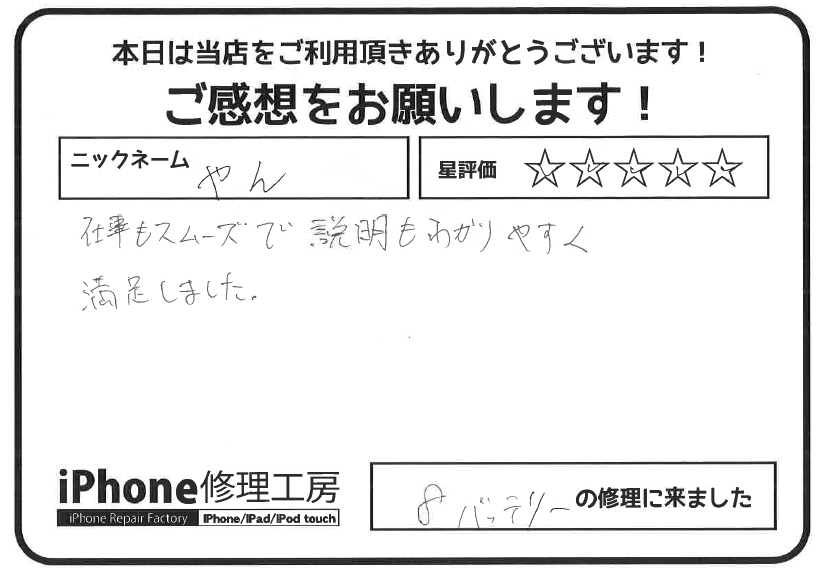 本日は当店をご利用頂きありがとうございます！
ご感想をお願いします！
ニックネーム やん
星評価 ☆☆☆☆☆
仕事もスムーズで説明もわかりやすく
満足しました。
iPhone修理工房
iPhone Repair Factory iPhone/iPad/iPod touch
8 バッテリーの修理に来ました